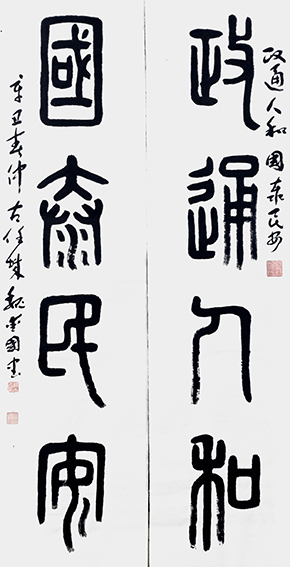 政通人和 國泰民安
政通人和
國泰民安
辛丑春仲 古任城 魏 國書